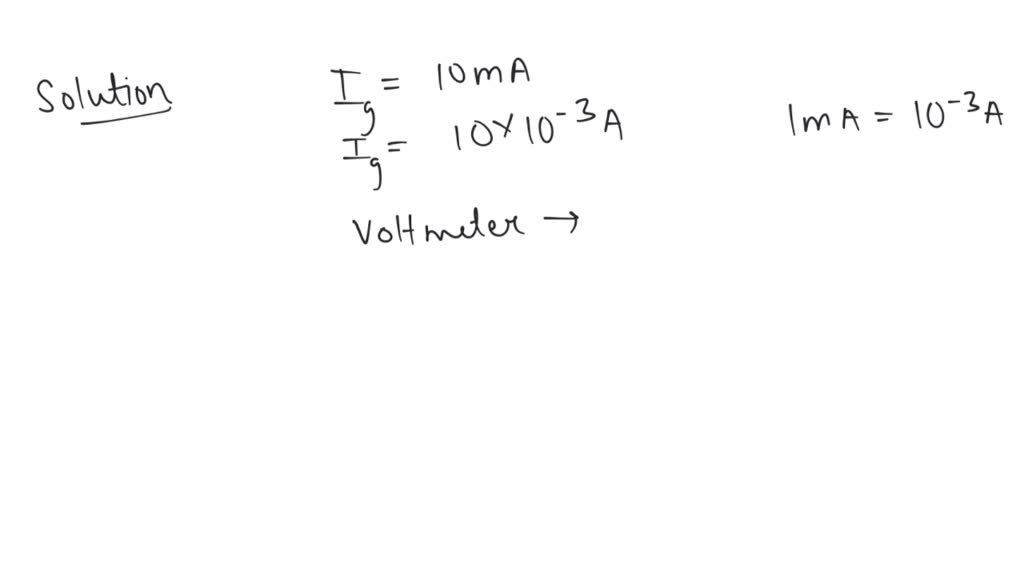 Solution
I_g = 10mA
I_g = 10×10^-3 A
1mA = 10^-3 A
Voltmeter →